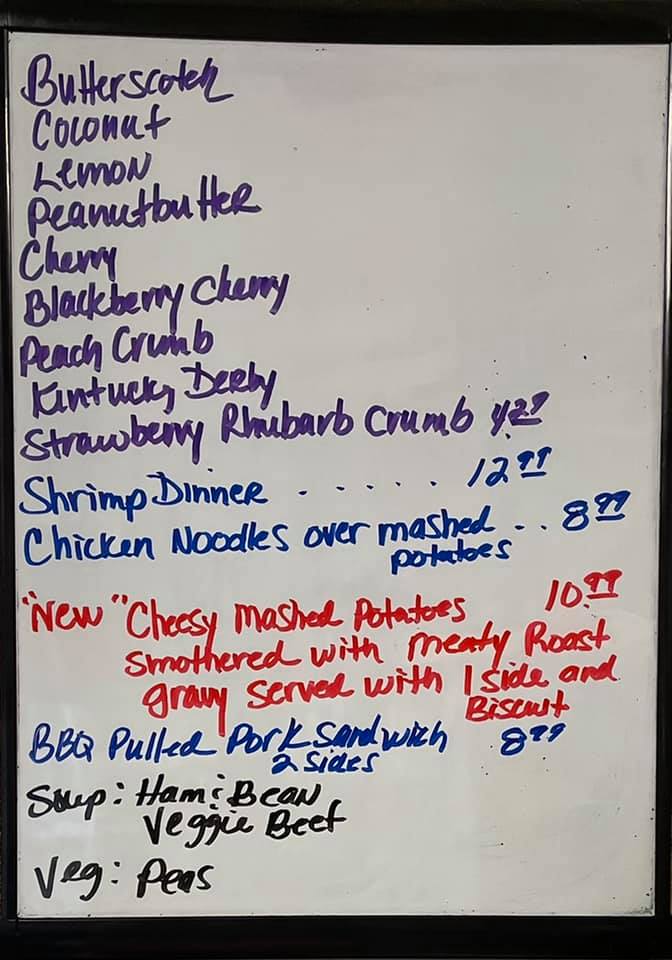 Butterscotch
Coconut
Lemon
Peanutbutter
Cherry
Blackberry Cherry
Peach Crumb
Kintucky Derby
Strawberry Rhubarb Crumb 4.29
Shrimp Dinner . . . . . 12.99
Chicken Noodles over mashed .. 8.99
potatoes
"New" Cheesy Mashed Potatoes 10.99
smothered with meaty Roast
gravy served with 1 side and
Biscuit
BBQ Pulled Pork Sandwich 8.99
2 sides
Soup: Ham & Bean
Veggie Beef
Veg: Peas